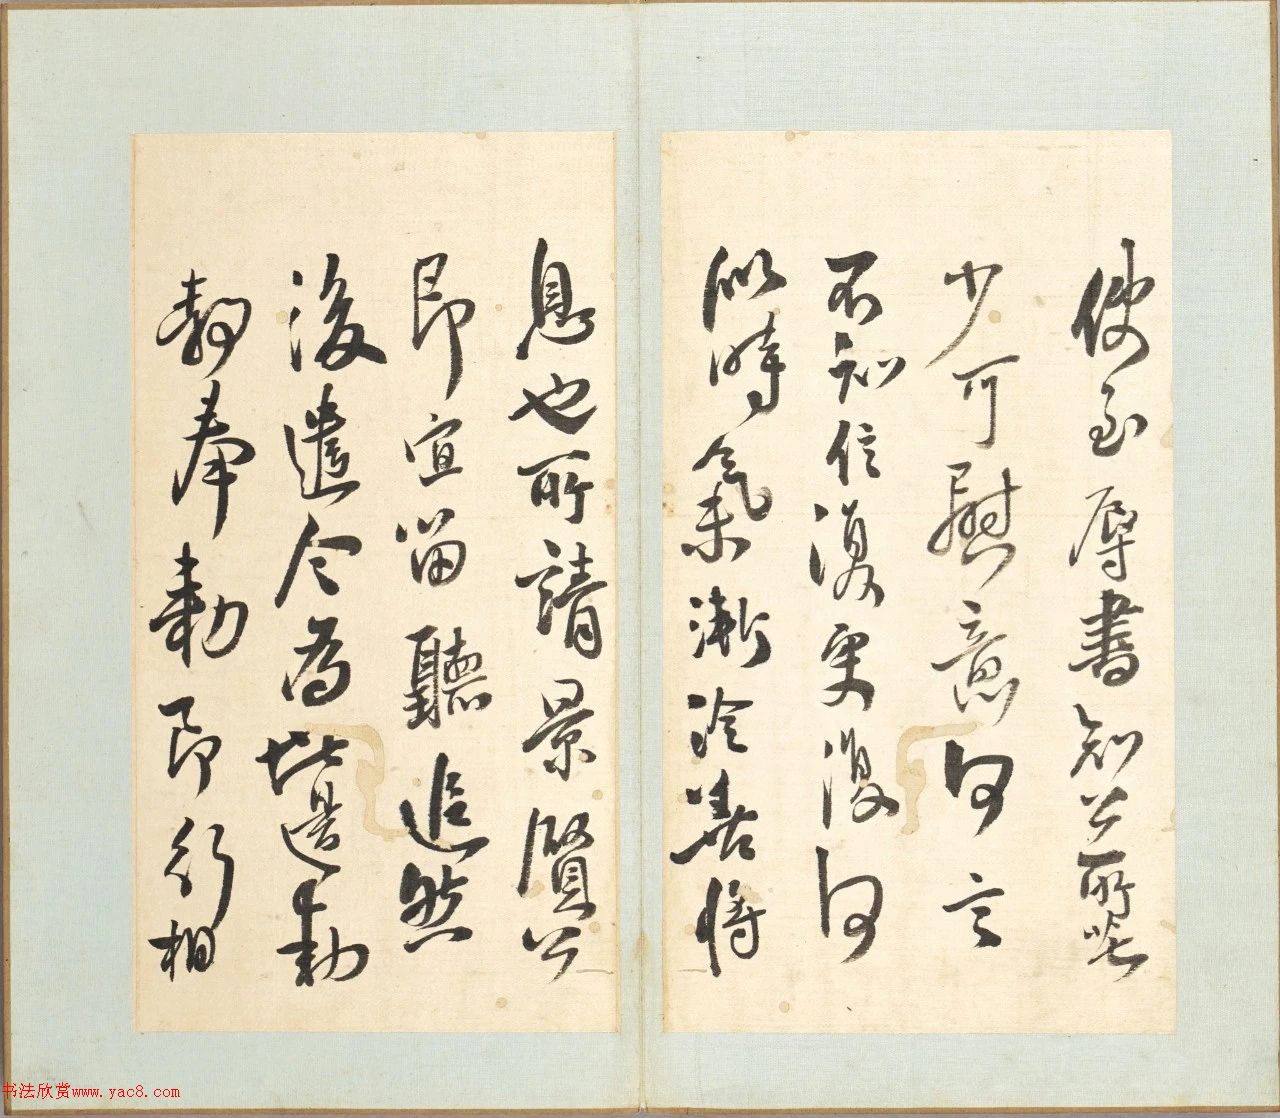 使至辱書知公所苦
少可慰意何言
不知信復更復何
似時氣漸冷善將
息也所請景賢公
即宜留聽追然
後遣令為此邊動
靜奉勅即行相
书法欣赏www.yac8.com